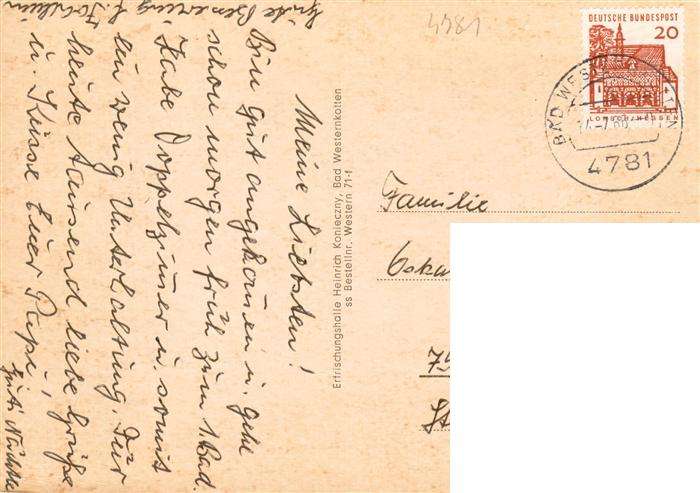 Meine Liebsten!
Bin gut angekommen u. gehe
schon morgen früh zum 1. Bad.
Habe Doppelzimmer u. somit
ein wenig Unterhaltung. Für
heute tausend liebe Grüße
u. Küsse Euer Papi!
Gute Besserung
Erfrischungshalle Heinrich Konieczny, Bad Westernkotten
ss Bestellnr. Western 71-f
4781
DEUTSCHE BUNDESPOST
20
LORSCH/HESSEN
BAD WESTERNKOTTEN
4781
Familie